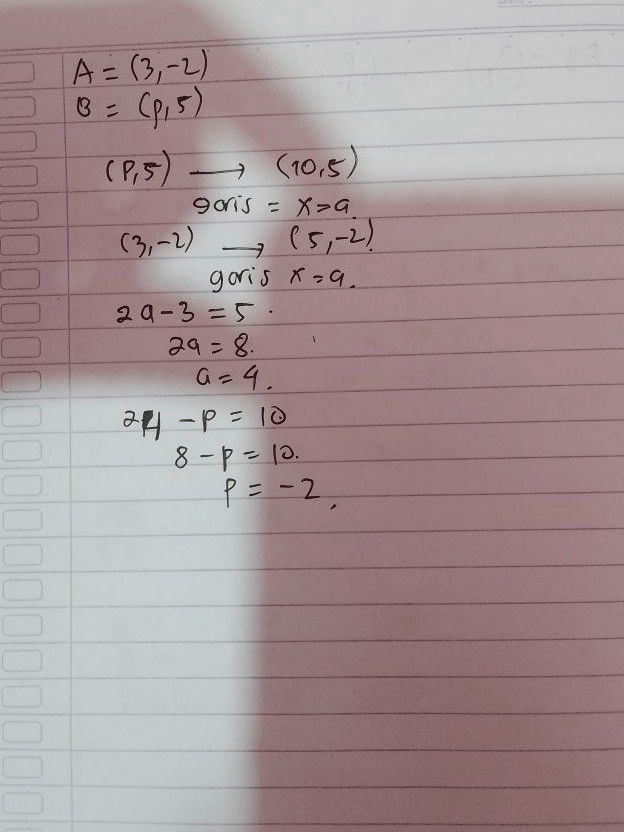 A = (3, -2)
B = (p, 5)
(P, 5) → (10, 5)
garis = x = a
(3, -2) → (5, -2)
garis x = a.
2a - 3 = 5.
2a = 8.
a = 4.
24 - p = 10
8 - p = 10.
p = -2.